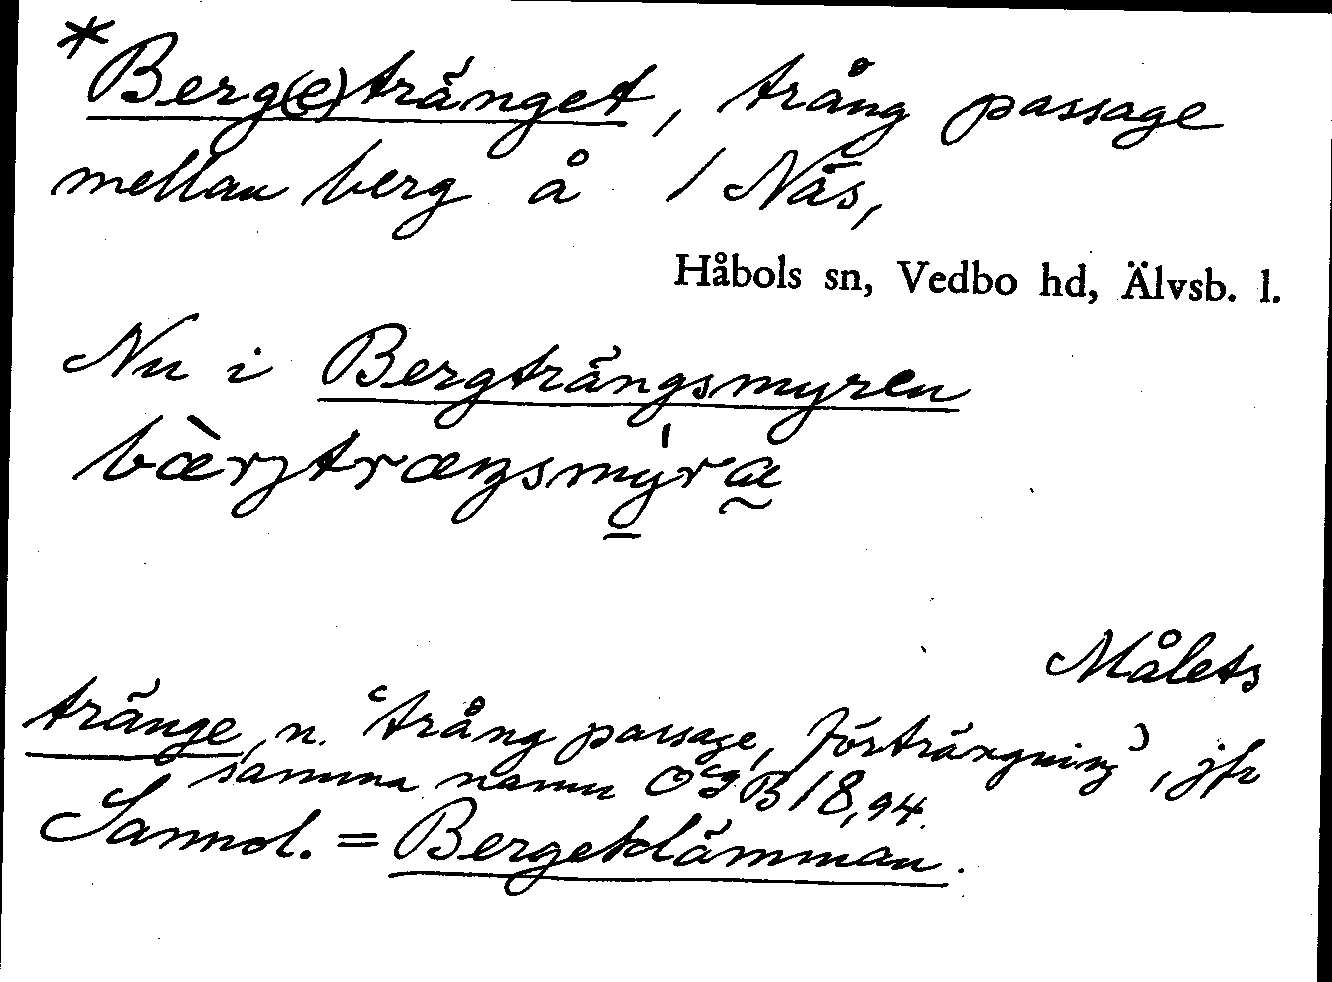 *Berg(e)tränget, trång passage
mellan berg å 1 Näs,
Håbols sn, Vedbo hd, Älvsb. l.
Nu i Bergträngsmyren
bæ̀rjtræŋsmy̱ˈra̰
Målets
tränge, n. ‘trång passage, förträngning’, jfr
samma namn OGB 18,94.
Sannol. = Bergeklämman.